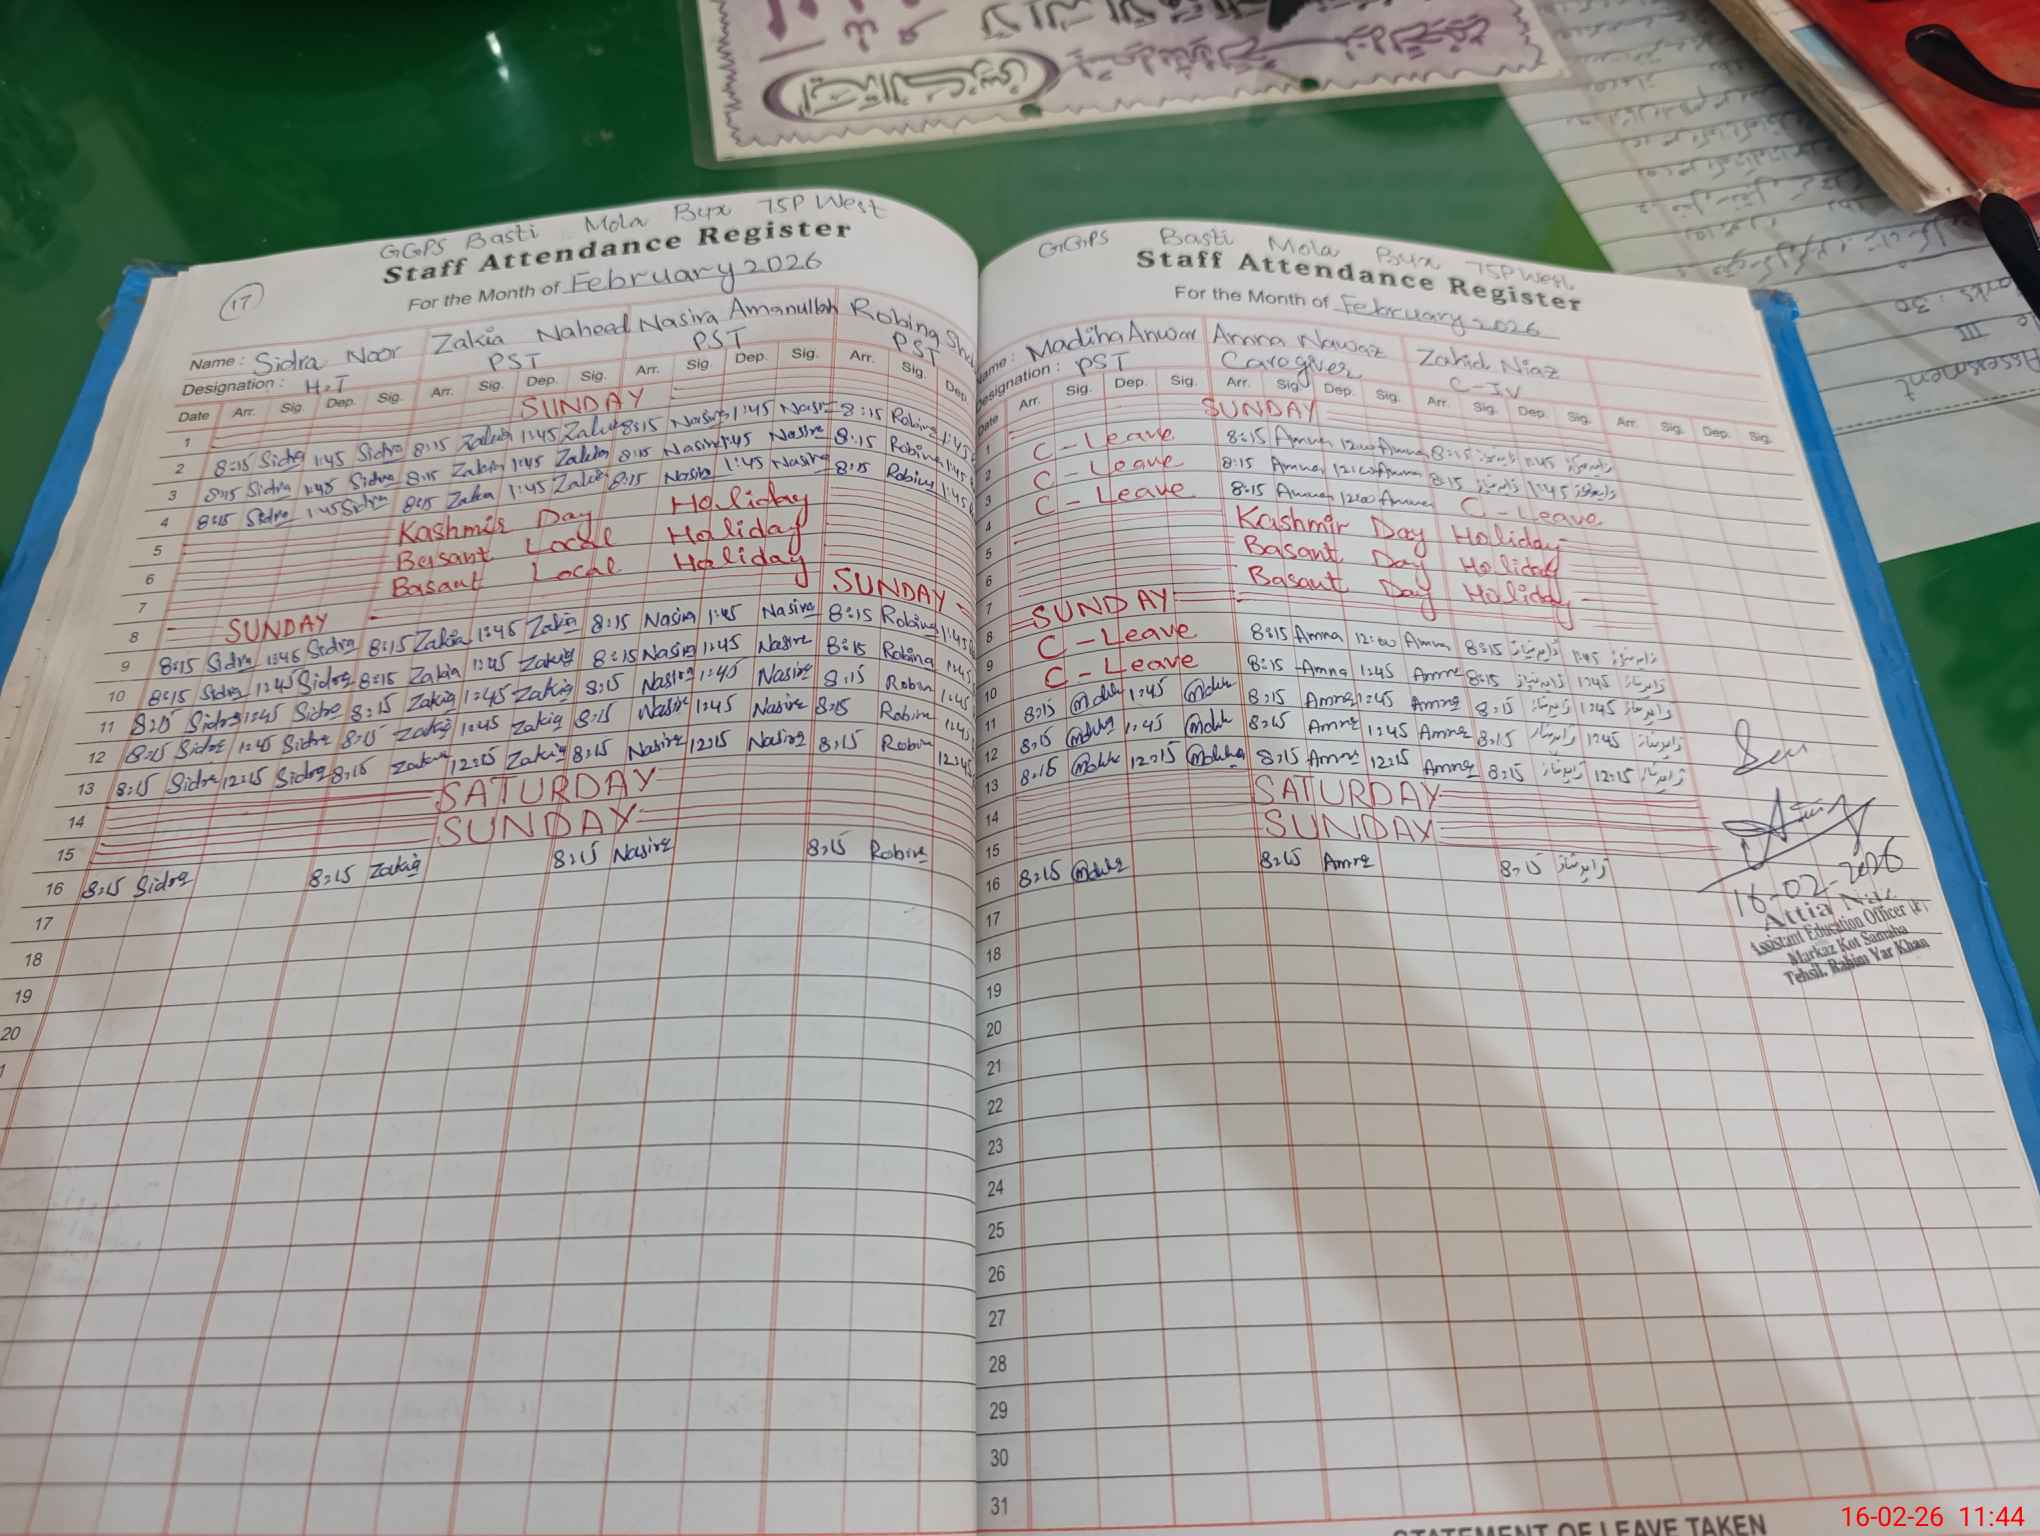 GGPS Basti Mola Bux 75P West
Staff Attendance Register
17
For the Month of February 2026
Name : Sidra Noor Zakia Naheed Nasira Amanullah Robina
Designation : H.T PST PST PST
Date Arr. Sig. Dep. Sig. Arr. Sig. Dep. Sig. Arr. Sig. Dep. Sig. Arr. Sig. Dep.
1 SUNDAY
2 8:15 Sidra 1:45 Sidra 8:15 Zakia 1:45 Zakia 8:15 Nasira 1:45 Nasira 8:15 Robina 1:45
3 8:15 Sidra 1:45 Sidra 8:15 Zakia 1:45 Zakia 8:15 Nasira 1:45 Nasira 8:15 Robina 1:45
4 8:15 Sidra 1:45 Sidra 8:15 Zakia 1:45 Zakia 8:15 Nasira 1:45 Nasira 8:15 Robina 1:45
5 Kashmir Day Holiday
6 Basant Local Holiday
7 Basant Local Holiday
8 SUNDAY SUNDAY
9 8:15 Sidra 1:45 Sidra 8:15 Zakia 1:45 Zakia 8:15 Nasira 1:45 Nasira 8:15 Robina 1:45
10 8:15 Sidra 1:45 Sidra 8:15 Zakia 1:45 Zakia 8:15 Nasira 1:45 Nasira 8:15 Robina 1:45
11 8:15 Sidra 1:45 Sidra 8:15 Zakia 1:45 Zakia 8:15 Nasira 1:45 Nasira 8:15 Robina 1:45
12 8:15 Sidra 1:45 Sidra 8:15 Zakia 1:45 Zakia 8:15 Nasira 1:45 Nasira 8:15 Robina 1:45
13 8:15 Sidra 12:15 Sidra 8:15 Zakia 12:15 Zakia 8:15 Nasira 12:15 Nasira 8:15 Robina 12:45
14 SATURDAY
15 SUNDAY
16 8:15 Sidra 8:15 Zakia 8:15 Nasira 8:15 Robina
17
18
19
20
GGPS Basti Mola Bux 75P West
Staff Attendance Register
For the Month of February 2026
Name : Madiha Anwar Amna Nawaz Zahid Niaz
Designation : PST Caregiver C-IV
Date Arr. Sig. Dep. Sig. Arr. Sig. Dep. Sig. Arr. Sig. Dep. Sig. Arr. Sig. Dep. Sig.
1 SUNDAY
2 C-Leave 8:15 Amna 12:00 Amna 8:15 زاہد نیاز 1:45 زاہد نیاز
3 C-Leave 8:15 Amna 12:00 Amna 8:15 زاہد نیاز 1:45 زاہد نیاز
4 C-Leave 8:15 Amna 12:00 Amna C-Leave
5 Kashmir Day Holiday
6 Basant Day Holiday
7 Basant Day Holiday
8 SUNDAY
9 C-Leave 8:15 Amna 12:00 Amna 8:15 زاہد نیاز 1:45 زاہد نیاز
10 C-Leave 8:15 Amna 1:45 Amna 8:15 زاہد نیاز 1:45 زاہد نیاز
11 8:15 Madiha 1:45 Madiha 8:15 Amna 1:45 Amna 8:15 زاہد نیاز 1:45 زاہد نیاز
12 8:15 Madiha 1:45 Madiha 8:15 Amna 1:45 Amna 8:15 زاہد نیاز 1:45 زاہد نیاز
13 8:15 Madiha 12:15 Madiha 8:15 Amna 12:15 Amna 8:15 زاہد نیاز 12:15 زاہد نیاز
14 SATURDAY
15 SUNDAY
16 8:15 Madiha 8:15 Amna 8:15 زاہد نیاز
17
18
19
20
21
22
23
24
25
26
27
28
29
30
31
Seen
16-02-2026
Attia
Assistant Education Officer
Markaz Kot Samaba
Tehsil. Rahim Yar Khan
STATEMENT OF LEAVE TAKEN
Assessment
III
30
16-02-26 11:44